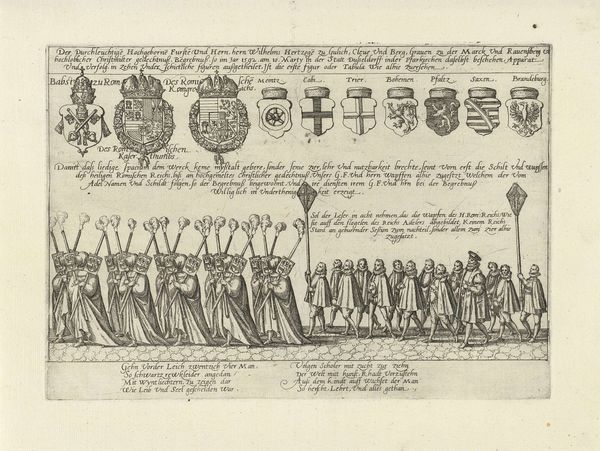 Der Durchleuchtige Hochgeborne Furste Und Hern, hern Wilhelms Hertzoge zu Gulich, Cleue Und Berg, Grauen zu der Marck und Rauensberg
hochloblicher Christmilter gedechtnuß Begrebnuß, so im Jar 1592 am 10. Marty in der Statt Dusseldorff inder Pfarkirchen daselbst beschehen, Apparat
Und Verfolg in Zehen Under schietliche figuren außgetheilet. Ist die erste figur oder Tabula Wie alhie Zuersehen.
Babst zu Rom
Des Romische
Kongreichs.
Mentz
Coln
Trier
Bohemen
Pfaltz
Saxen
Brandeburg
Des Romischen
Kaiserthumbs
Damit daß liedige spatium dem Werck keine mißstalt gebere, sonder seine zier, lehr Und nutzbarkeit brechte, seint Vorn erst die Schilt Und Wapffen
des heiligen Romischen Reichs, biß an hochgemeltes Christlicher gedechtnuß Unsers G.F. Und hern Wapffen alhie zugesetzt Welchem der Vom
Adel Namen Und Schildt folgen, so der Begrebnuß beigewohnt, Und ire diensten irem G.F. Und hern bei der Begrebnuß
Williglich in Underthenigkeit erzeigt.
Sol der Leser in acht nemen, das die Wapffen des H. Rom: Reichs, Wie
sie auff den flegelen des Reichs Adelers abgebildet, Keinem Reichs
Stant an gebuerender Session zum nachteil, sonder allem zum zier alhie
zugesatzt.
Gehn Vorder Leich zwentzich Vier Man
So schwartz rewkleider angedan
Mit Wyntliechtern, Zu zeigen dar
Wie Leib Und Seel gescheiden War
Volgen Scholer mit zucht zug ziehn
Der Welt mitt kunst, Khadt Vorzustehn
Auß dem kindt auff Wachset der Man
So herscht, Lehrt, Und alles gethan